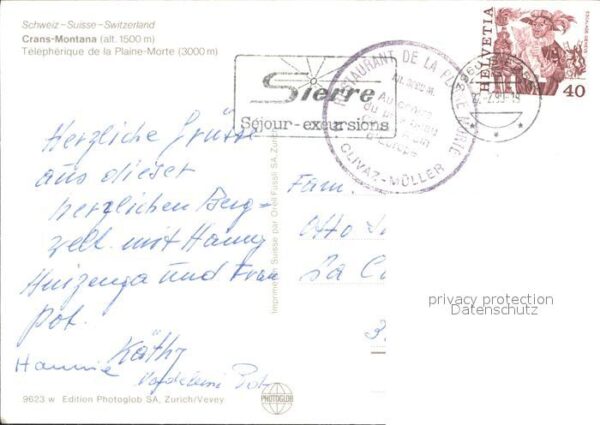 Schweiz – Suisse – Switzerland
Crans-Montana (alt. 1500 m)
Téléphérique de la Plaine-Morte (3000 m)
Sierre
Séjour-excursions
RESTAURANT DE LA PLAINE MORTE
ALT. 3000 M.
Au centre
du plus
d'Europe
CLIVAZ-MÜLLER
3960
HELVETIA
ESCALADE GENEVE
40
Herzliche Grüsse
aus dieser
herzlichen Berg-
welt mit Hanny
Huizenga und Frau
Pot.
Käthy
Hannie
Fam.
Otto
3
Imprimé en Suisse par Orell Füssli SA, Zurich
privacy protection
Datenschutz
9623 w Edition Photoglob SA, Zurich/Vevey
PHOTOGLOB